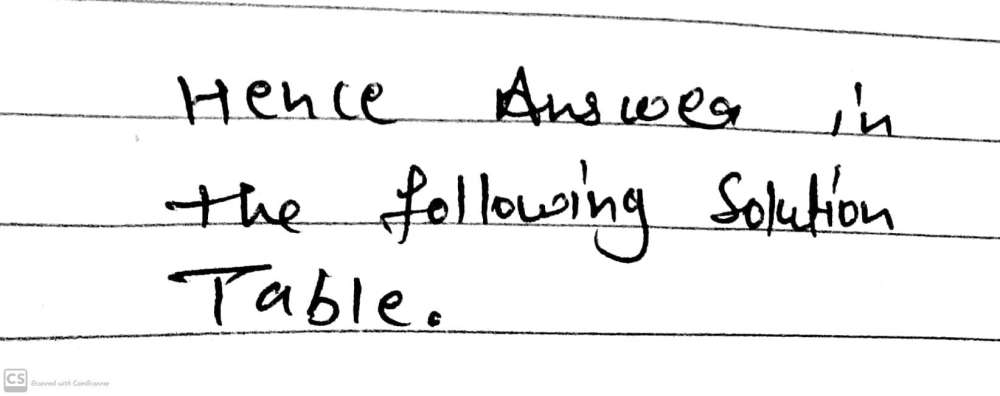 Hence Answer in
the following Solution
Table.
CS Scanned with CamScanner